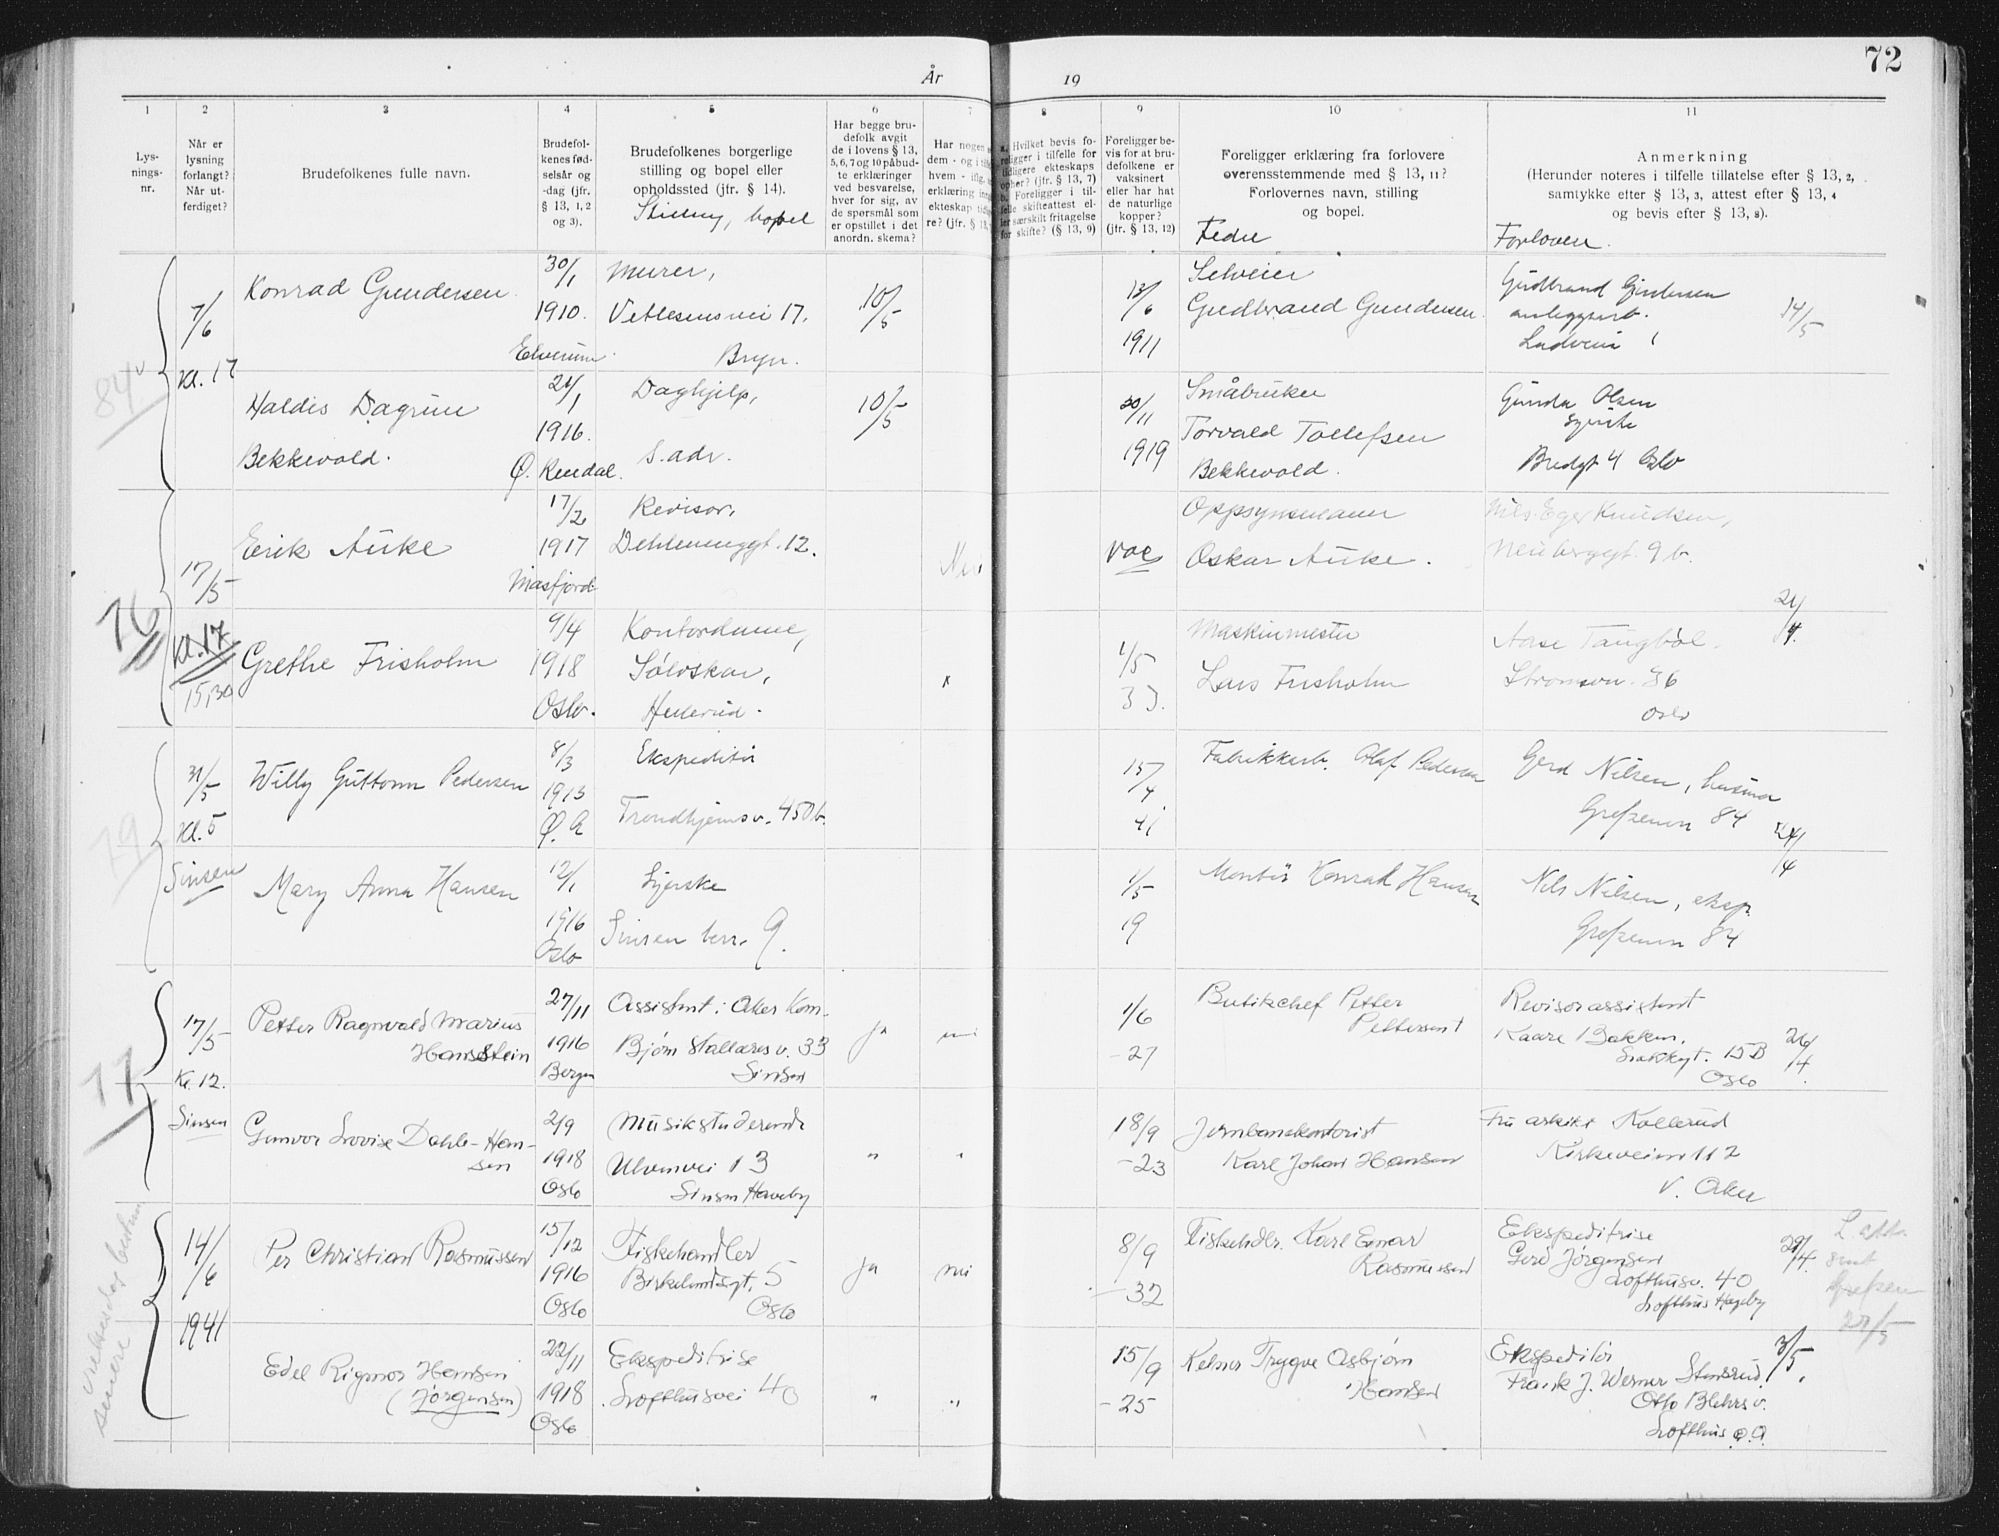 72
År 19
1 2 3 4 5 6 7 8 9 10 11
Lys-
nings-
nr.
Når er
lysning
forlangt?
Når ut-
ferdiget?
Brudefolkenes fulle navn.
Brudefol-
kenes fød-
selsår og
-dag (jfr.
§ 13, 1, 2
og 3).
Brudefolkenes borgerlige
stilling og bopel eller
opholdssted (jfr. § 14).
Stilling, bopel
Har begge bru-
defolk avgit
de i lovens § 13,
5, 6, 7 og 10 påbud-
te erklæringer
ved besvarelse,
hver for sig, av
de spørsmål som
er opstillet i det
anordn. skema?
Har nogen
dem - og i
hvem - iflg.
erklæring
ekteskap
re? (jfr. § 13,
a. Hvilket bevis fo-
religger i tilfelle for
tidligere ekteskaps
ophør? (jfr. § 13, 7)
b. Foreligger i til-
felle skifteattest el-
ler særskilt fritagelse
for skifte? (§ 13, 9)
Foreligger be-
vis for at bru-
defolkene er
vaksinert
eller har hat
de naturlige
kopper?
(jfr. § 13, 12)
Foreligger erklæring fra forlovere
overensstemmende med § 13, 11?
Forlovernes navn, stilling
og bopel.
Fedre
Anmerkning
(Herunder noteres i tilfelle tillatelse efter § 13, 2,
samtykke efter § 13, 3, attest efter § 13, 4
og bevis efter § 13, 8).
Forlovere.
84
7/6
Kl. 17
Konrad Gundersen
30/1
1910.
Elverum.
Murer,
Vetlesensvei 17.
Bryn.
10/5
13/6
1911
Selveier
Gudbrand Gundersen.
Gudbrand Gundersen
anleggsarb.
14/5
Haldis Dagrun
Bekkevold.
21/1
1916.
Ø. Rendal.
Daghjelp,
s. adr.
10/5
20/11
1919
Småbruker
Torvald Tollefsen
Bekkevold.
Gunda Olsen
Bredgt 4 Oslo
76
17/5
Kl. 17
15,30
Eirik Auke
17/2
1917
Masfjord
Revisor,
Dehlenenggt. 12.
Nei
vac
Oppsynsmann
Oskar Auke.
Nils Eger Knudsen,
Neuberggt. 9 b.
21/4.
Grethe Frisholm
9/4
1918
Oslo.
Kontordame,
Sølvskar,
1/5
33.
Maskinmester
Lars Frisholm
Aase Tangbøl.
Strømsvn. 36
Oslo
79
31/5
Kl. 5
Sinsen
Willy Guttorm Pedersen
8/3
1913
Ø. A
Ekspeditør
Trondhjemsv. 450b.
15/4
41
Fabrikkarb. Olaf Pedersen
Gerd Nilsen, husmor
Grefsenvn 84
24/4
Mary Anna Hansen
12/1
1916
Oslo
Syerske
Sinsen terr. 9.
1/5
19
Montør Konrad Hansen
Nils Nilsen, eksp.
Grefsenvn 84
77
17/5
Kl. 12.
Sinsen
Petter Ragnvald Marius
Hansstein
27/11
1916
Bergen
Assistent i Aker Kom.
Bjørn Stallaresv. 33
Sinsen
ja
nei
1/6
-27
Butikchef Petter
Pettersen
Revisorassistent
Kaare Bakken.
15B
Oslo
26/4.
Gunvor Lovise Dahle-Han-
sen
2/9
1918
Oslo
Musikstuderende
Ulvenvei 13
Sinsen Haveby
"
"
18/9
-23
Jernbanekontorist
Karl Johan Hansen
Fru arkitekt Kollerud
Kirkeveien 112
V. Aker
14/6
1941
Per Christian Rasmussen
15/12
1916
Oslo
Fiskehandler
Birkelundsgt. 5
Oslo
ja
nei
8/9
-32
Fiskehdlr. Karl Einar
Rasmussen
Ekspeditrise
Gerd Jørgensen
Lofthusv. 40
Lofthus Hageby
29/4.
L. att.
sent
Grefsen
27/5
vielsesdag bestem
senere
Edel Rigmor Hansen
(Jørgensen)
22/11
1918
Oslo
Ekspeditrise
Lofthusvei 40
"
"
15/9
-25
Kelner Trygve Asbjørn
Hansen
Ekspeditør
Frank J. Werner Stensrud
Otto Blehrs v.
Lofthus Ø.A.
3/5.